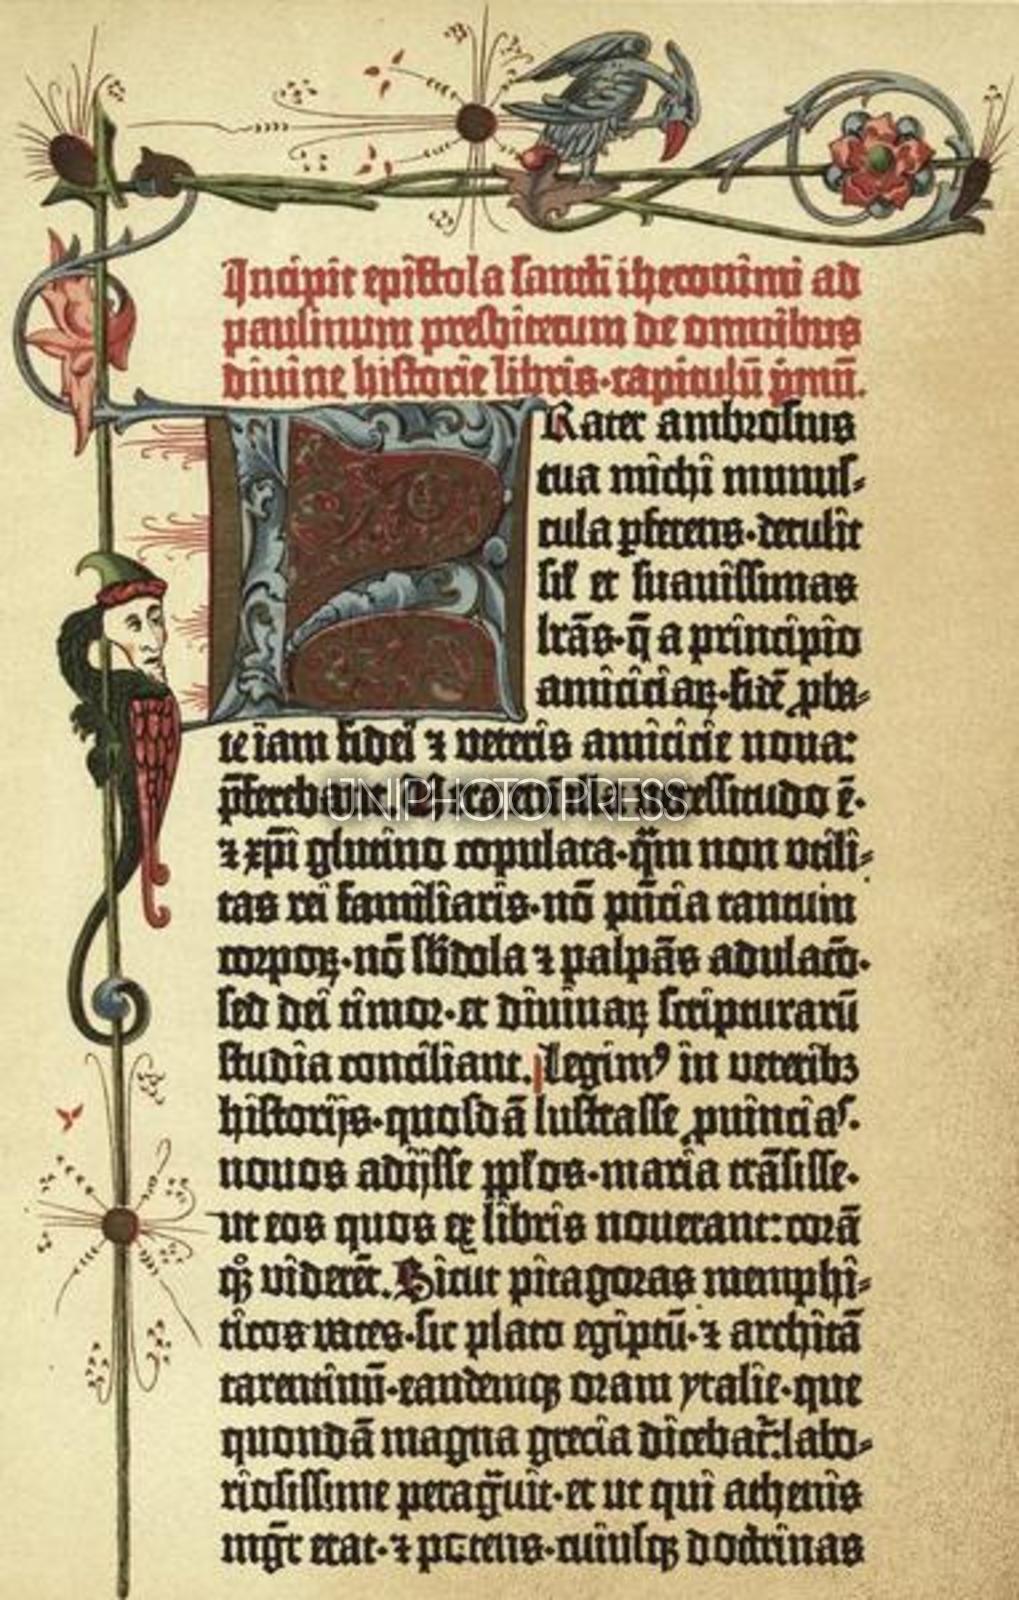 Incipit epistola sancti iheronimi ad
paulinum presbiterum de omnibus
divine historie libris·capitulū p̄mū.
FRater ambrosius
tua michi munus-
cula pferens·detulit
sil̄ et suauissimas
lr̄as·q̄ a principio
amiciciaꝝ·fidē ꝓba-
te iam fidei ⁊ veteris amicicie noua:
p̄ferebant. necessitudo ē·
⁊ xp̄i glutino copulata·q̄m non utili-
tas rei familiaris·nō p̄ncia tantum
corpoꝝ·nō sb̄dola ⁊ palpās adulacō·
sed dei timor·et diuinaꝝ scripturarū
studia conciliant. Legimꝰ in veteribꝫ
historijs·quosdā lustrasse ꝓuincias·
nouos adijsse ppl̄os·maria trāsisse·
ut eos quos ex libris nouerant: corā
qꝫ viderēt. Sicut pitagoras memphi-
ticos vates·sic plato egiptū·⁊ architā
tarentinū·eandemqꝫ oram ytalie·que
quondā magna grecia dicebat̄: labo-
riosissime peragᷓuit·et ut qui athenis
mgr̄ erat·⁊ potens·cuiusqꝫ doctrinas
UNIPHOTO PRESS